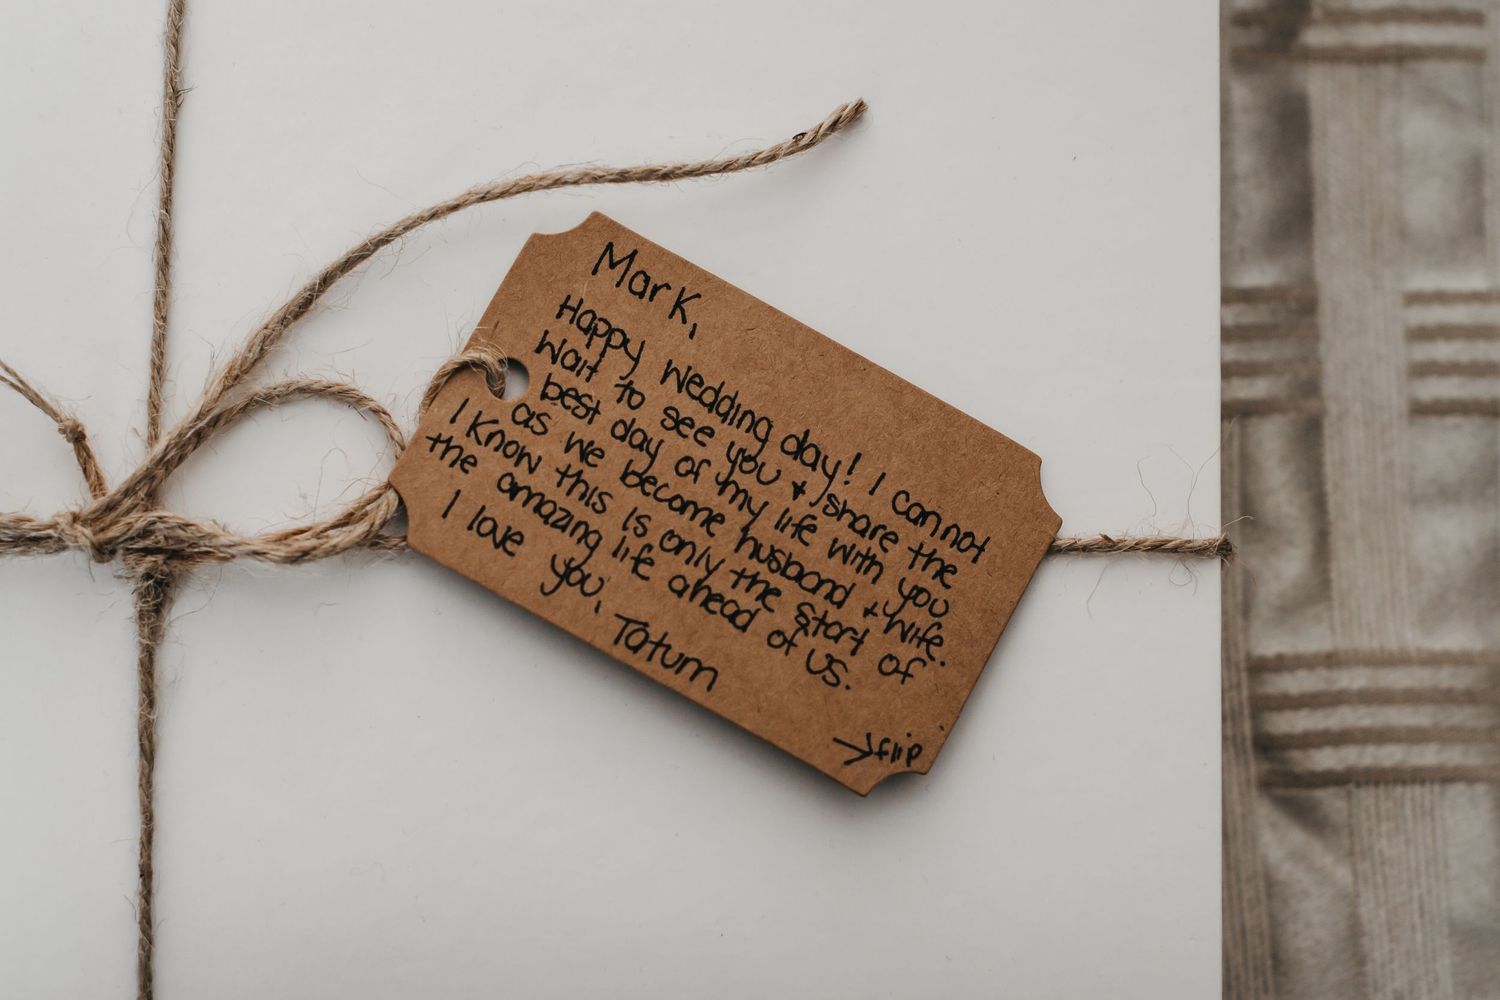 Mark,
Happy wedding day! I cannot
wait to see you + share the
best day of my life with you
as we become husband + wife.
I know this is only the start of
the amazing life ahead of us.
I love you,
Tatum
→flip